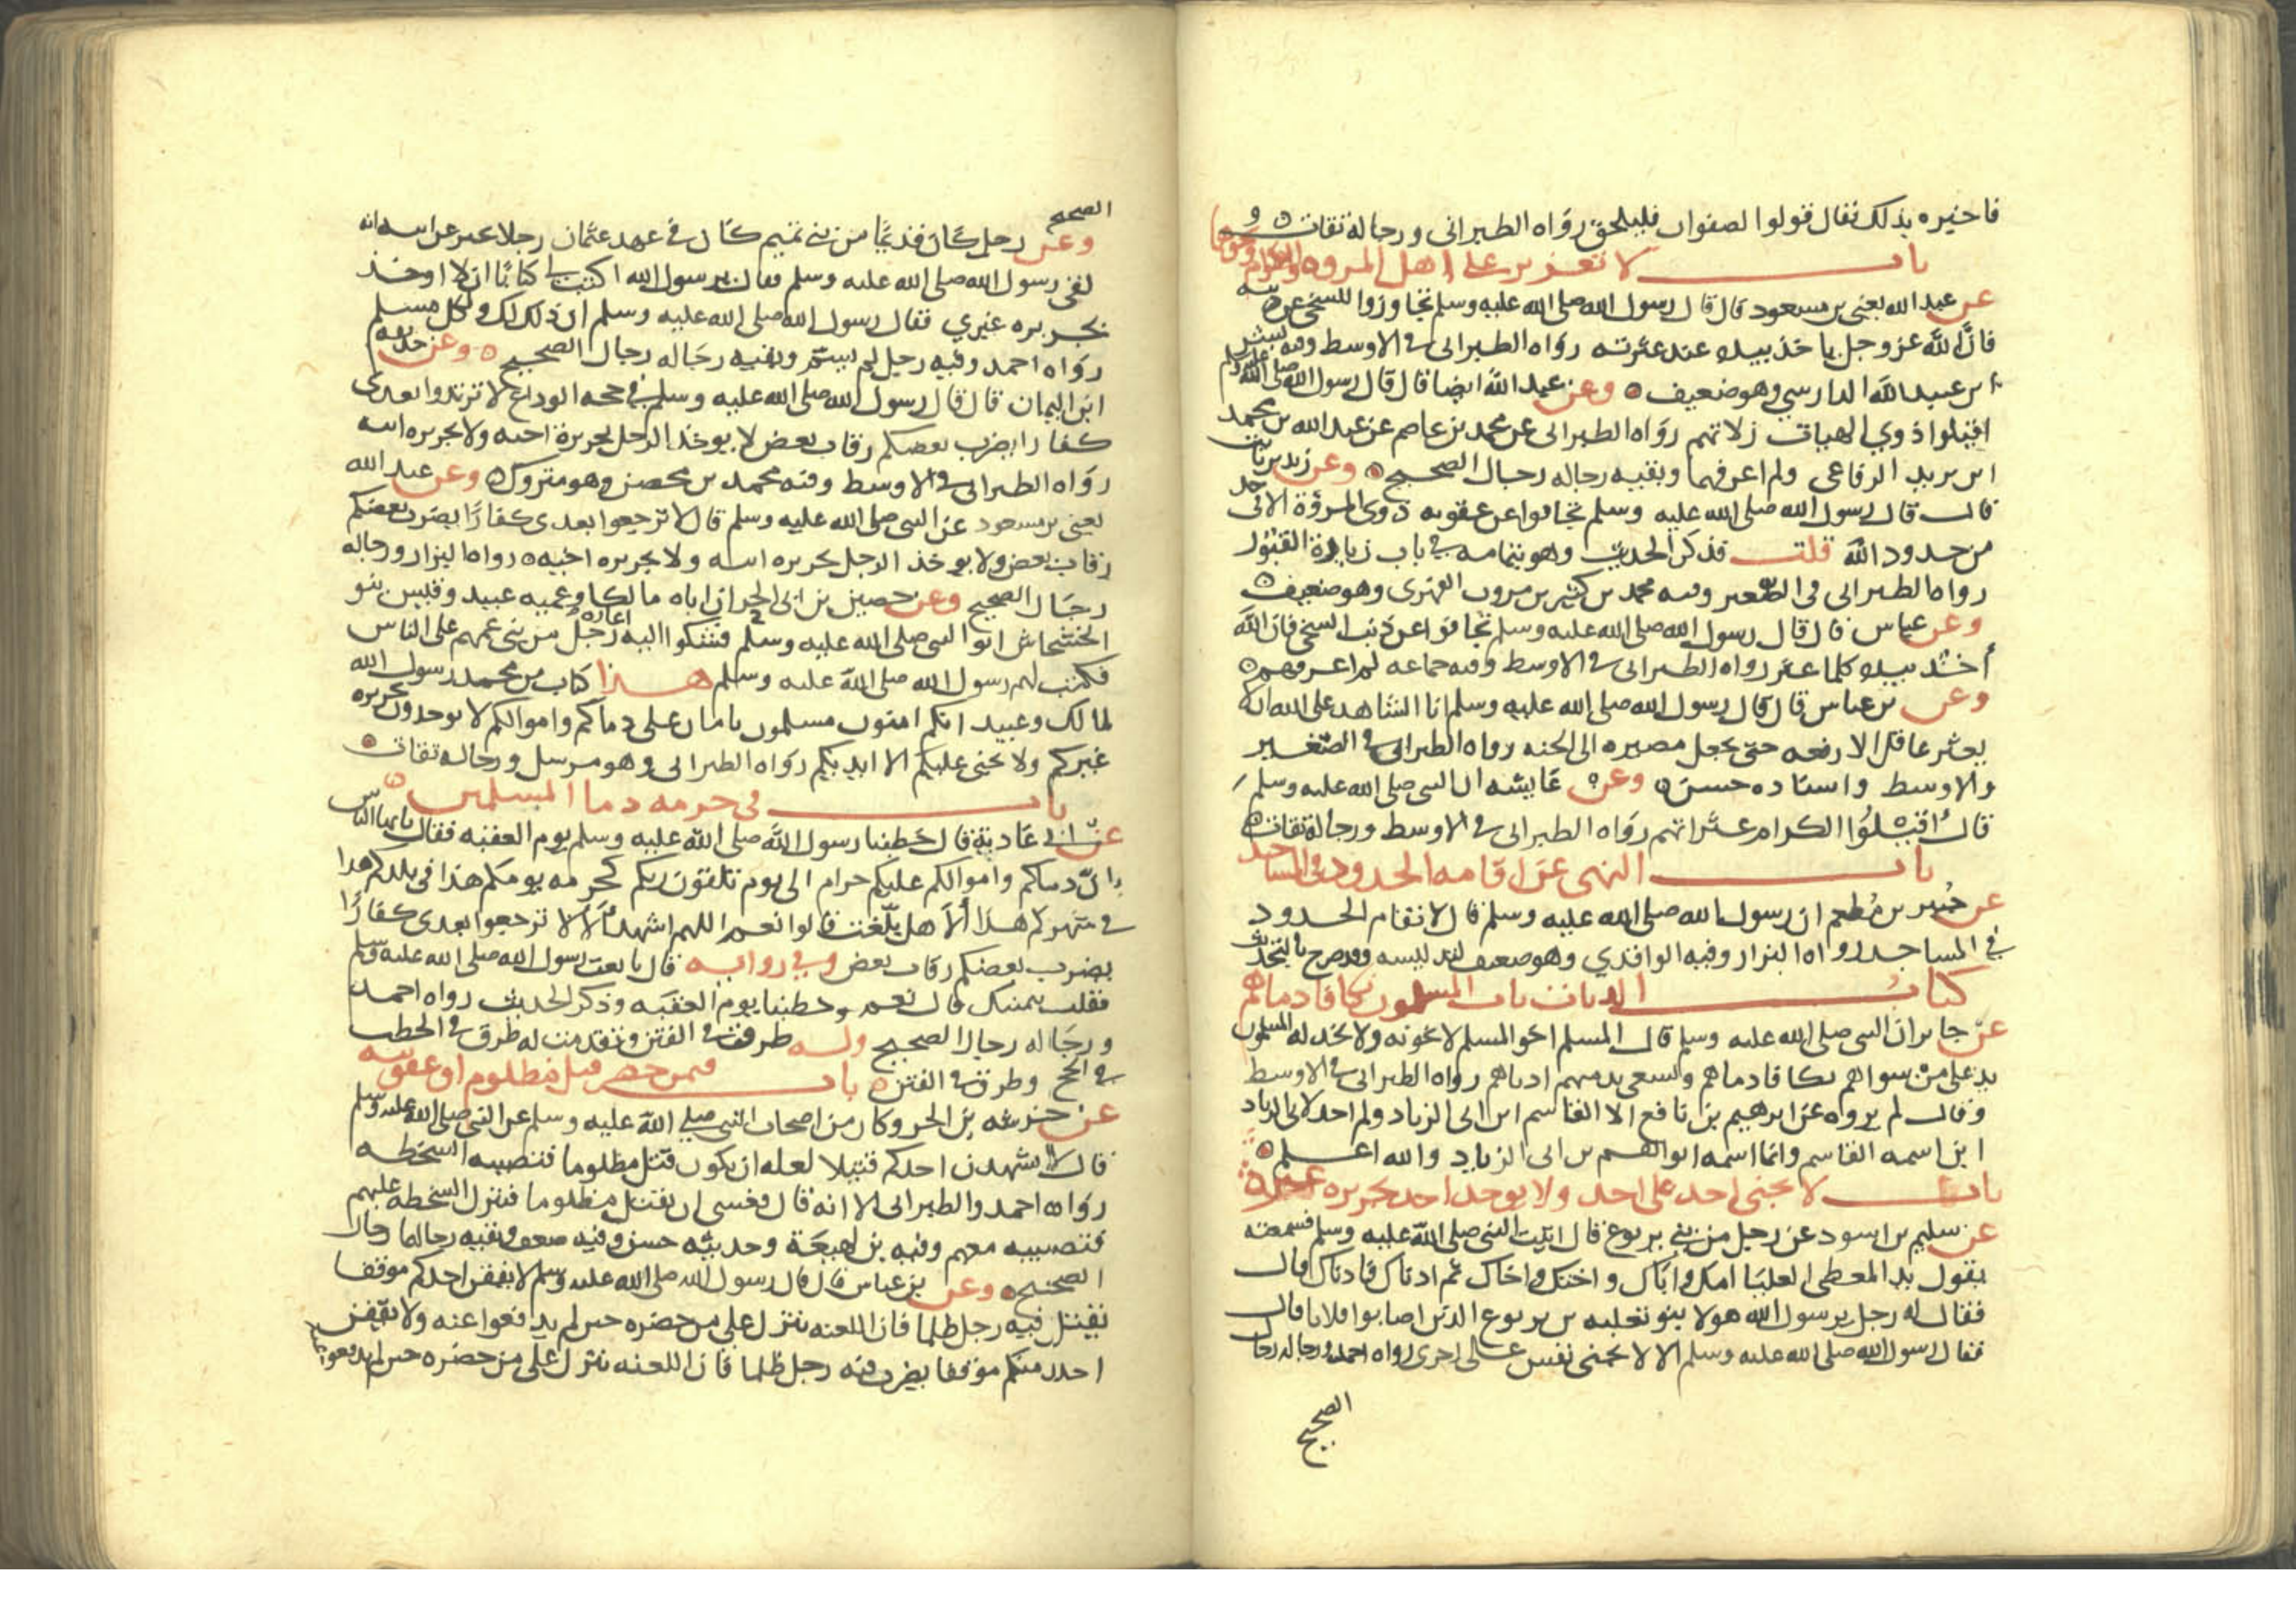 فاخبره بذلك فقال قولوا لصفوان فليلحق رواه الطبراني ورجاله ثقات
باب لا تعزير على اهل المروه والكرام ونحوها
عن عبد الله يعني بن مسعود قال قال رسول الله صلى الله عليه وسلم تجاوزوا للسخي عن ذنبه
فان الله عز وجل ياخذ بيده عند عثرته رواه الطبراني في الاوسط وفيه بشر
ابن عبيد الله الدارسي وهو ضعيف وعن عبد الله ايضا قال قال رسول الله صلى الله عليه وسلم
اقيلوا ذوي الهيات زلاتهم رواه الطبراني عن محمد بن عاصم عن عبد الله بن محمد
ابن يزيد الرفاعي ولم اعرفهما وبقيه رجاله رجال الصحيح وعن زيد بن ثابت
قال قال رسول الله صلى الله عليه وسلم تجافوا عن عقوبه ذوي المروة الا في حد
من حدود الله قلت فذكر الحديث وهو بتمامه في باب زيارة القبور
رواه الطبراني في الصغير وفيه محمد بن كثير بن مروان الفهري وهو ضعيف
وعن عباس قال قال رسول الله صلى الله عليه وسلم تجافوا عن ذنب السخي فان الله
أخذ بيده كلما عثر رواه الطبراني في الاوسط وفيه جماعه لم اعرفهم
وعن بن عباس قال قال رسول الله صلى الله عليه وسلم انا الشاهد على الله ان لا
يعثر عاقل الا رفعه حتى يجعل مصيره الى الجنه رواه الطبراني في الصغير
والاوسط واسناده حسن وعن عايشه ان النبي صلى الله عليه وسلم
قال أقيلوا الكرام عثراتهم رواه الطبراني في الاوسط ورجاله ثقات
باب النهي عن اقامه الحدود في المساجد
عن جبير بن مطعم ان رسول الله صلى الله عليه وسلم قال لا تقام الحدود
في المساجد رواه البزار وفيه الواقدي وهو ضعيف لتدليسه وقد صرح بالتحديث
كتاب الديات باب المسلمون تكافا دماهم
عن جابر ان النبي صلى الله عليه وسلم قال المسلم اخو المسلم لا يخونه ولا يخذله المسلمون
يد على من سواهم تكافا دماهم ويسعى بذمتهم ادناهم رواه الطبراني في الاوسط
وقال لم يروه عن ابرهيم بن نافع الا القاسم ابن ابي الزياد ولم احد لابي الزياد
ابن اسمه القاسم وانما اسمه ابو القسم بن ابي الزياد والله اعلم
باب لا يجني احد على احد ولا يوخذ احد بجريره غيره
عن سليم بن اسود عن رجل من بني يربوع قال اتيت النبي صلى الله عليه وسلم فسمعته
يقول يد المعطي العليا امك واباك واختك واخاك ثم ادناك فادناك قال
فقال له رجل يرسول الله هولا بنو ثعلبه بن يربوع الذين اصابوا فلانا قال
فقال رسول الله صلى الله عليه وسلم الا لا تجني نفس على اخرى رواه احمد ورجاله رجال
الصحيح
الصحيح
وعن رجل كان قديما من بني تميم كان في عهد عثمان رجلا يخبر عن ابيه انه
لقي رسول الله صلى الله عليه وسلم فقال يرسول الله اكتب لي كتابا ان لا اوخذ
بجريره غيري فقال رسول الله صلى الله عليه وسلم ان ذلك لك ولكل مسلم
رواه احمد وفيه رجل لم يسم وبقيه رجاله رجال الصحيح وعن حذيفه
ابن اليمان قال قال رسول الله صلى الله عليه وسلم في حجه الوداع لا ترتدوا بعدي
كفارا يضرب بعضكم رقاب بعض لا يوخذ الرجل بجريرة اخيه ولا بجريره ابيه
رواه الطبراني في الاوسط وفيه محمد بن محصن وهو متروك وعن عبد الله
يعني بن مسعود عن النبي صلى الله عليه وسلم قال لا ترجعوا بعدي كفارًا يضرب بعضكم
رقاب بعض ولا يوخذ الرجل بجريره ابيه ولا بجريره اخيه رواه البزار ورجاله
رجال الصحيح وعن حصين بن ابي الحر ان اباه مالكا وعميه عبيد وقيس بنو
الخشخاش اتوا النبي صلى الله عليه وسلم فشكوا اليه اغاره رجل من بني عمهم على الناس
فكتب لهم رسول الله صلى الله عليه وسلم هذا كتاب من محمد رسول الله
لمالك وعبيد انكم امنون مسلمون بامان على دماكم واموالكم لا توخذون بجريره
غيركم ولا يجني عليكم الا ايديكم رواه الطبراني وهو مرسل ورجاله ثقات
باب في حرمه دما المسلمين
عن ابي غادية قال خطبنا رسول الله صلى الله عليه وسلم يوم العقبه فقال يا ايها الناس
ان دماكم واموالكم عليكم حرام الى يوم تلقون ربكم كحرمه يومكم هذا في بلدكم هذا
في شهركم هذا ألا هل بلغت قالوا نعم اللهم اشهد ألا لا ترجعوا بعدي كفارًا
يضرب بعضكم رقاب بعض وفي روايه قال بايعت رسول الله صلى الله عليه وسلم
فقلت بيمينك قال نعم وخطبنا يوم العقبه وذكر الحديث رواه احمد
ورجاله رجال الصحيح وله طرق في الفتن وتقدمت له طرق في الخطب
في الحج وطرق في الفتن باب فيمن حضر قتل مظلوم او عقوبته
عن خرشه بن الحر وكان من اصحاب النبي صلى الله عليه وسلم عن النبي صلى الله عليه وسلم
قال لا يشهدن احدكم قتيلا لعله ان يكون قتل مظلوما فتصيبه السخطه
رواه احمد والطبراني الا انه قال فعسى ان يقتل مظلوما فتنزل السخطه عليهم
فتصيبه معهم وفيه بن لهيعة وحديثه حسن وفيه ضعف وبقيه رجالهما رجال
الصحيح وعن بن عباس قال قال رسول الله صلى الله عليه وسلم لا يقفن احدكم موقفا
يقتل فيه رجل ظلما فان اللعنه تنزل على من حضره حين لم يدفعوا عنه ولا يقفن
احد منكم موقفا يضرب فيه رجل ظلما فان اللعنه تنزل على من حضره حين لم يدفعوا عنه